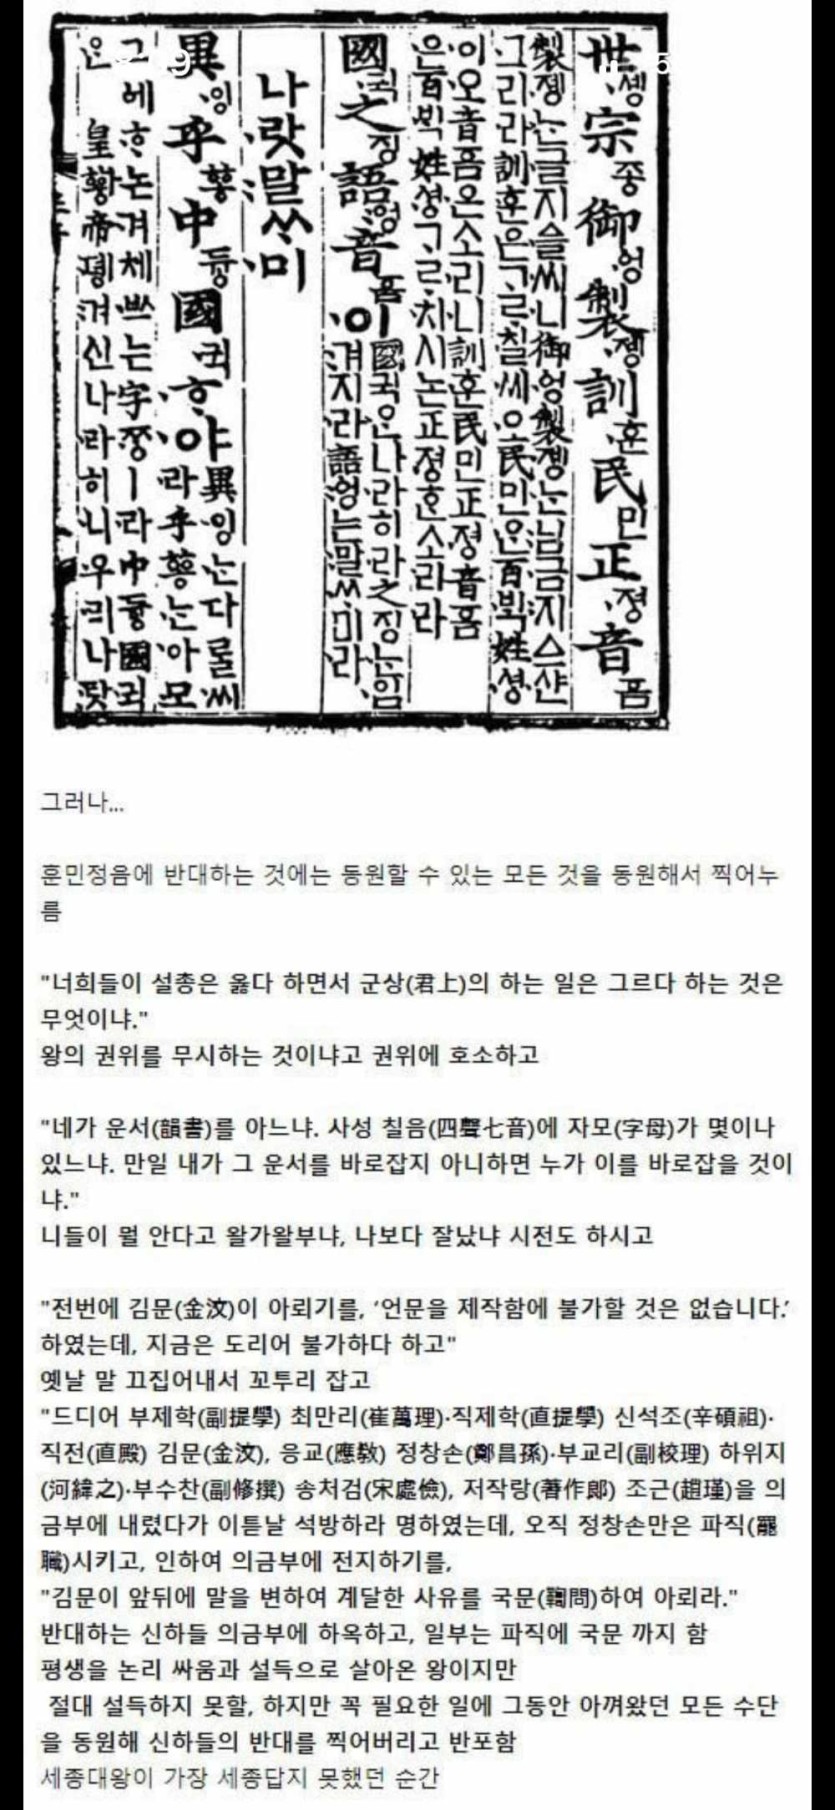 世솅宗종御엉製젱訓훈民민正졍音ᅙᅳᆷ
製젱ᄂᆞᆫ글지ᅀᅳᆯ씨니御엉製젱ᄂᆞᆫ님금지ᅀᅳ샨
그리라訓훈은ᄀᆞᄅᆞ칠씨오民민ᄋᆞᆫ百ᄇᆡᆨ姓셩
이오音ᅙᅳᆷ은소리니訓훈民민正졍音ᅙᅳᆷ
은百ᄇᆡᆨ姓셩ᄀᆞᄅᆞ치시논正졍ᄒᆞᆫ소리라
國귁之징語ᅌᅥᆼ音ᅙᅳᆷ이
國귁ᄋᆞᆫ나라히라之징ᄂᆞᆫ입
겨지라語ᅌᅥᆼ는말ᄊᆞ미라
나랏말ᄊᆞ미
異잉乎ᅘᅩᆼ中듕國귁ᄒᆞ야
異잉ᄂᆞᆫ다ᄅᆞᆯ씨
라乎ᅘᅩᆼᄂᆞᆫ아모
그ᅌᅦᄒᆞ논겨체ᄡᅳ는字ᄍᆞᆼㅣ라中듕國귁
ᄋᆞᆫ皇ᅘᅪᇰ帝뎽겨신나라히니우리나랏
그러나...
훈민정음에 반대하는 것에는 동원할 수 있는 모든 것을 동원해서 찍어누
름
"너희들이 설총은 옳다 하면서 군상(君上)의 하는 일은 그르다 하는 것은
무엇이냐."
왕의 권위를 무시하는 것이냐고 권위에 호소하고
"네가 운서(韻書)를 아느냐. 사성 칠음(四聲七音)에 자모(字母)가 몇이나
있느냐. 만일 내가 그 운서를 바로잡지 아니하면 누가 이를 바로잡을 것이
냐."
니들이 뭘 안다고 왈가왈부냐, 나보다 잘났냐 시전도 하시고
"전번에 김문(金汶)이 아뢰기를, '언문을 제작함에 불가할 것은 없습니다.'
하였는데, 지금은 도리어 불가하다 하고"
옛날 말 끄집어내서 꼬투리 잡고
"드디어 부제학(副提學) 최만리(崔萬理)·직제학(直提學) 신석조(辛碩祖)·
직전(直殿) 김문(金汶), 응교(應敎) 정창손(鄭昌孫)·부교리(副校理) 하위지
(河緯之)·부수찬(副修撰) 송처검(宋處儉), 저작랑(著作郞) 조근(趙瑾)을 의
금부에 내렸다가 이튿날 석방하라 명하였는데, 오직 정창손만은 파직(罷
職)시키고, 인하여 의금부에 전지하기를,
"김문이 앞뒤에 말을 변하여 계달한 사유를 국문(鞫問)하여 아뢰라."
반대하는 신하들 의금부에 하옥하고, 일부는 파직에 국문 까지 함
평생을 논리 싸움과 설득으로 살아온 왕이지만
절대 설득하지 못할, 하지만 꼭 필요한 일에 그동안 아껴왔던 모든 수단
을 동원해 신하들의 반대를 찍어버리고 반포함
세종대왕이 가장 세종답지 못했던 순간